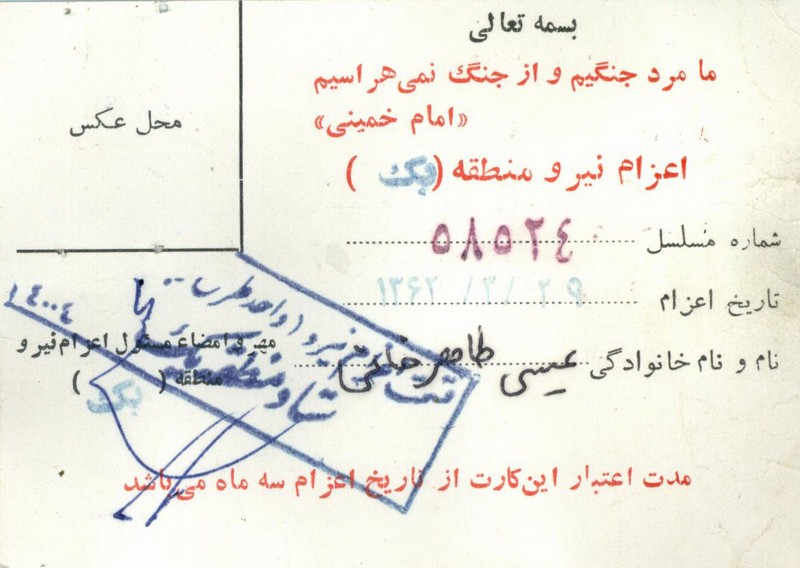 بسمه تعالی
ما مرد جنگیم و از جنگ نمی‌هراسیم
«امام خمینی»
اعزام نیرو منطقه (یک)
محل عکس
شماره مسلسل ۵۸۵۲۴
تاریخ اعزام ۱۳۶۲/۳/۲۹
نام و نام خانوادگی عیسی
مهر و امضاء مسئول اعزام نیرو
منطقه (یک)
مدت اعتبار این‌کارت از تاریخ اعزام سه ماه می‌باشد